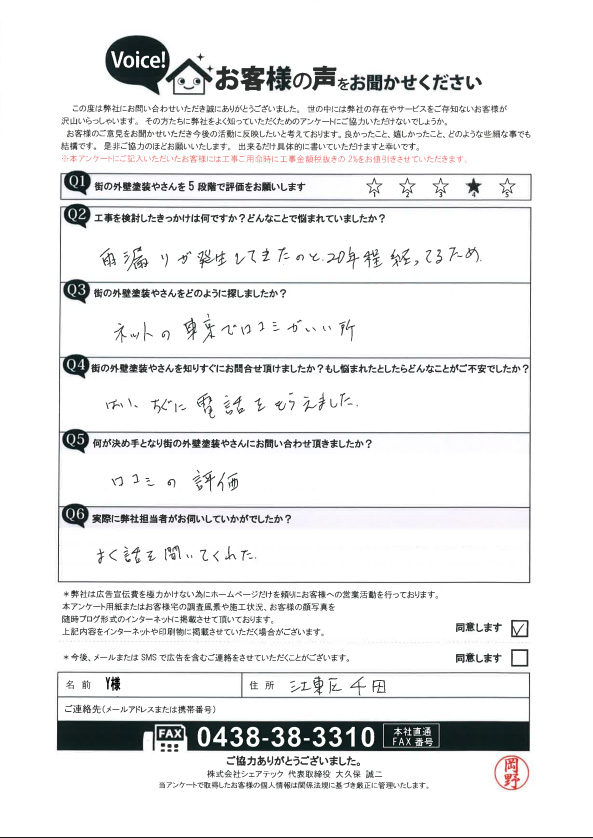 Voice!
お客様の声をお聞かせください
この度は弊社にお問い合わせいただき誠にありがとうございました。 世の中には弊社の存在やサービスをご存知ないお客様が
沢山いらっしゃいます。 その方たちに弊社をよく知っていただくためのアンケートにご協力いただけないでしょうか。
お客様のご意見をお聞かせいただき今後の活動に反映したいと考えております。良かったこと、嬉しかったこと、どのような些細な事でも
結構です。 是非ご協力のほどお願いいたします。 出来るだけ具体的に書いていただけますと幸いです。
※本アンケートにご記入いただいたお客様には工事ご用命時に工事金額税抜きの 2%をお値引きさせていただきます。
Q1 街の外壁塗装やさんを 5 段階で評価をお願いします ☆ ☆ ☆ ★ ☆
1 2 3 4 5
Q2 工事を検討したきっかけは何ですか?どんなことで悩まれていましたか?
雨漏りが発生してきたのと、20年程経ってるため.
Q3 街の外壁塗装やさんをどのように探しましたか?
ネットの東京で口コミがいい所
Q4 街の外壁塗装やさんを知りすぐにお問合せ頂けましたか?もし悩まれたとしたらどんなことがご不安でしたか?
はい、すぐに電話をもらえました.
Q5 何が決め手となり街の外壁塗装やさんにお問い合わせ頂きましたか?
口コミの評価
Q6 実際に弊社担当者がお伺いしていかがでしたか?
よく話を聞いてくれた.
＊弊社は広告宣伝費を極力かけない為にホームページだけを頼りにお客様への営業活動を行っております。
本アンケート用紙またはお客様宅の調査風景や施工状況、お客様の顔写真を
随時ブログ形式のインターネットに掲載させて頂いております。
上記内容をインターネットや印刷物に掲載させていただく場合がございます。 同意します ☑
＊今後、メールまたは SMS で広告を含むご連絡をさせていただくことがございます。 同意します □
名 前 Y様 住 所 江東区千田
ご連絡先(メールアドレスまたは携帯番号)
FAX 0438-38-3310 本社直通
FAX 番号
ご協力ありがとうございました。
株式会社シェアテック 代表取締役 大久保 誠二
当アンケートで取得したお客様の個人情報は関係法規に基づき厳正に管理いたします。
岡野